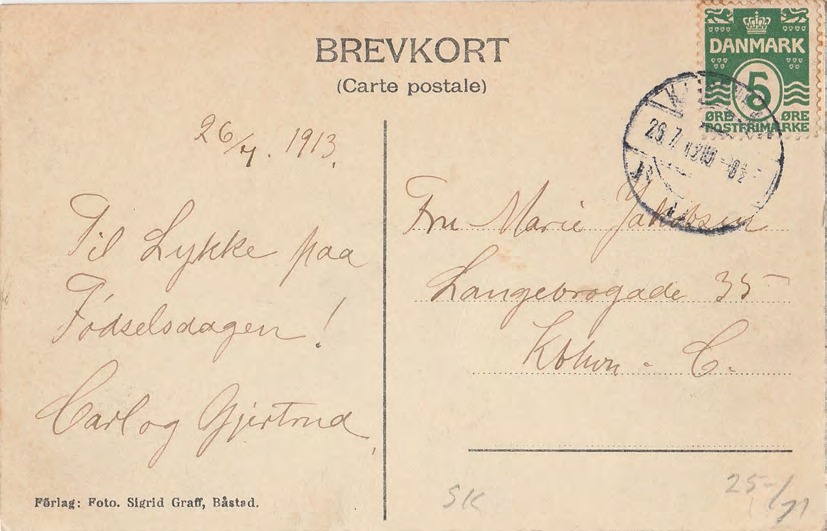 BREVKORT
(Carte postale)
DANMARK
5
ØRE ØRE
POSTFRIMÆRKE
26.7.13
26/7. 1913.
Til Lykke paa
Fødselsdagen!
Carl og Gjertrud
Fru Marie Jakobsen
Langebrogade 35
Kbhvn. C.
Förlag: Foto. Sigrid Graff, Båstad.
SK
25-/71